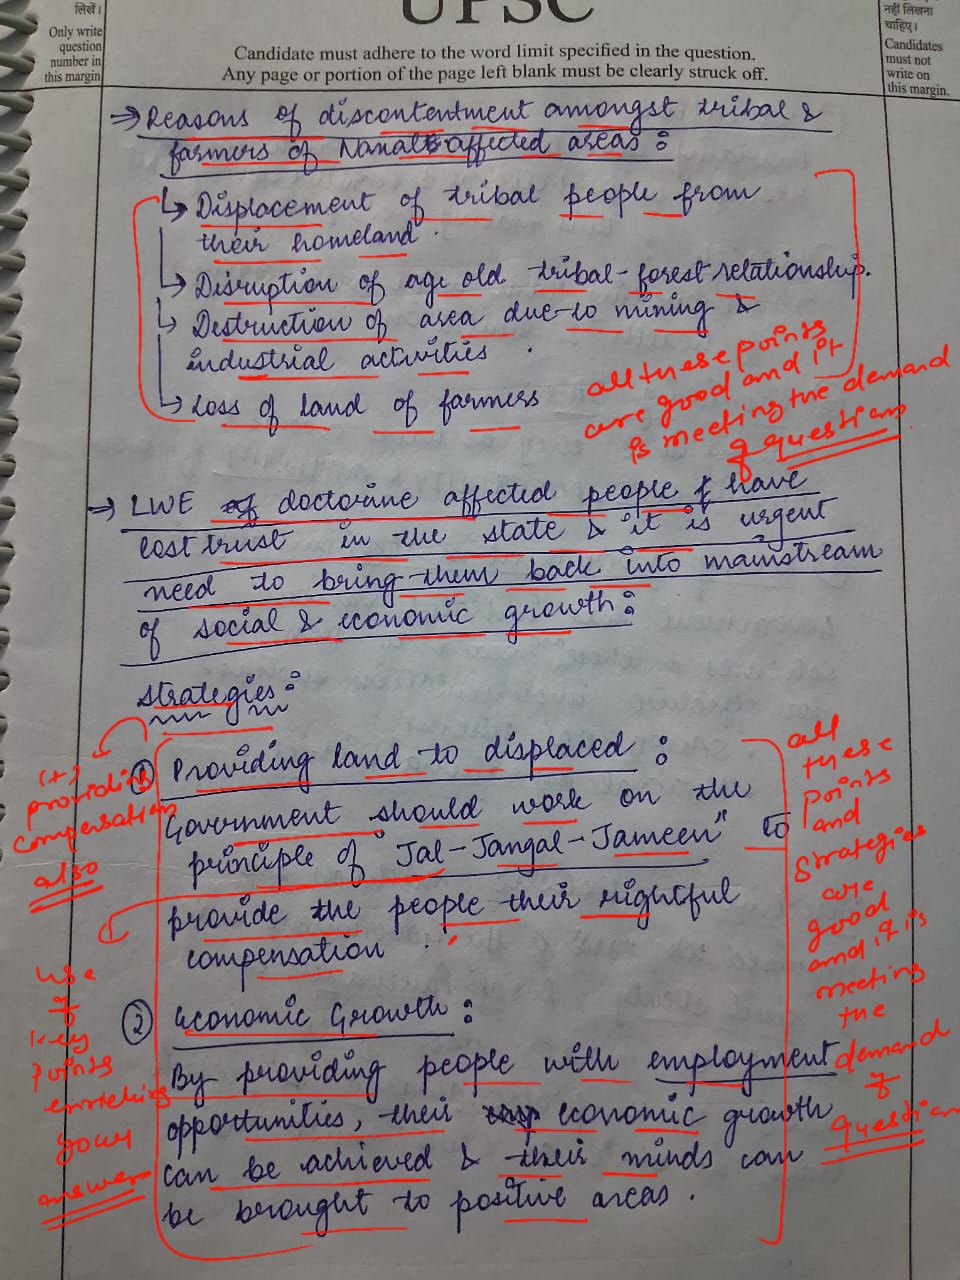 लिखें।
Only write
question
number in
this margin
UPSC
Candidate must adhere to the word limit specified in the question.
Any page or portion of the page left blank must be clearly struck off.
नहीं लिखना
चाहिए।
Candidates
must not
write on
this margin.
→ Reasons of discontentment amongst tribal &
farmers of Naxal affected areas :
↳ Displacement of tribal people from
their homeland.
↳ Disruption of age old tribal-forest relationship.
↳ Destruction of area due-to mining &
industrial activities.
↳ Loss of land of farmers
all these points
are good and it
is meeting the demand
of question
→ LWE of doctorine affected people & have
lost trust in the state & it is urgent
need to bring them back into mainstream
of social & economic growth :
Strategies :
(+)
providing
compensation
also
① Providing land to displaced :
Government should work on the
principle of "Jal-Jangal-Jameen" to
provide the people their rightful
compensation.
use
of
key
points
enriching
your
answer
② Economic Growth :
By providing people with employment
opportunities, their economic growth
can be achieved & their minds can
be brought to positive areas.
all
these
points
and
strategies
are
good
and it is
meeting
the
demand
of
question